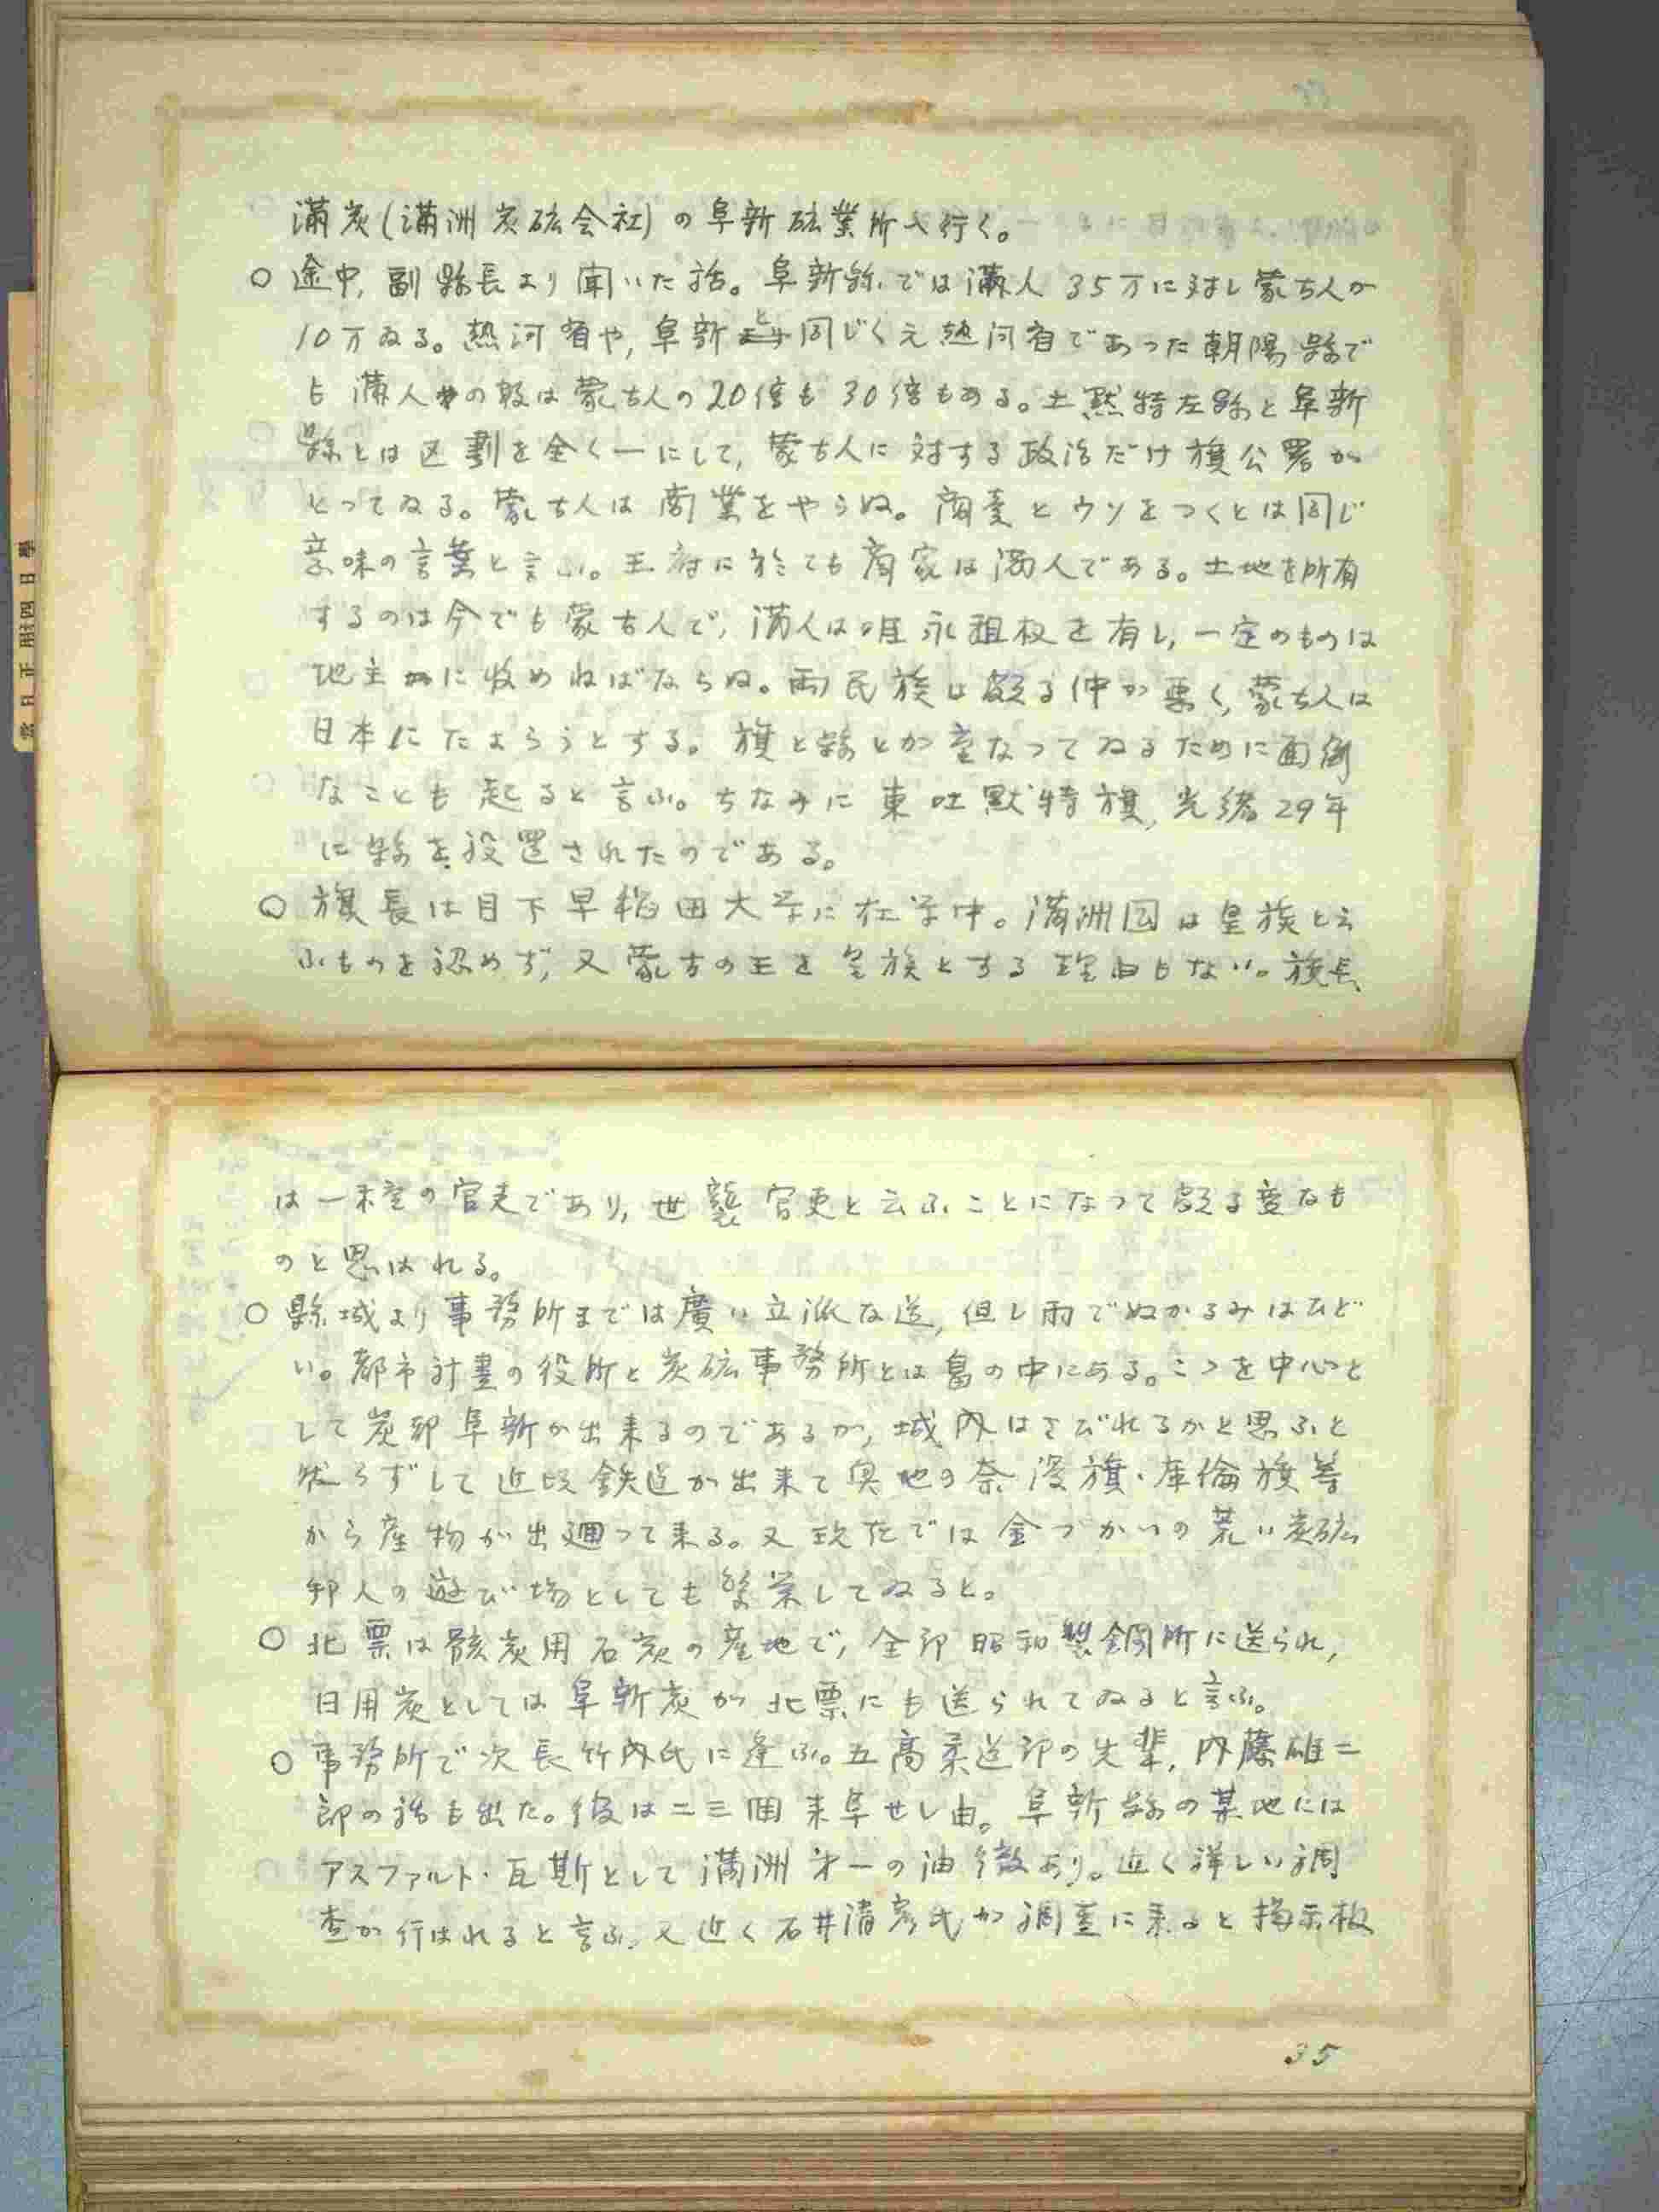 満炭(満洲炭砿会社)の阜新砿業所へ行く。
○ 途中,副縣長より聞いた話。阜新縣では満人35万に対し蒙古人が
10万ゐる。熱河省や,阜新と同じく元熱河省であった朝陽縣で
も満人の数は蒙古人の20倍も30倍もある。土黙特左縣と阜新
縣とは区劃を全く一にして,蒙古人に対する政治だけ旗公署が
とってゐる。蒙古人は商業をやらぬ。商売とウソをつくとは同じ
意味の言葉と言ふ。王府に於ても商家は満人である。土地を所有
するのは今でも蒙古人で,満人は唯永租权を有し,一定のものは
地主に收めねばならぬ。両民族は頗る仲が悪く,蒙古人は
日本にたよらうとする。旗と縣とが重なってゐるために面倒
なことも起ると言ふ。ちなみに東吐黙特旗,光緒29年
に縣を設置されたのである。
○ 旗長は目下早稲田大学に在学中。満洲国は皇族と云
ふものを認めず,又蒙古の王を皇族とする理由もない。旗長
は一種の官吏であり,世襲官吏と云ふことになって頗る変なも
のと思はれる。
○ 縣城より事務所までは廣い立派な道,但し雨でぬかるみはひど
い。都市計畫の役所と炭砿事務所とは畠の中にある。こゝを中心と
して炭都阜新が出来るのであるが,城内はさびれるかと思ふと
然らずして近頃鉄道が出来て奥地の奈漫旗・庫倫旗等
から産物が出廻って来る。又現在では金づかいの荒い炭砿
邦人の遊び場としても繁栄してゐると。
○ 北票は骸炭用石炭の産地で,全部昭和製鋼所に送られ,
日用炭としては阜新炭が北票にも送られてゐると言ふ。
○ 事務所で次長竹内氏に逢ふ。五高柔道部の先輩,内藤雄二
郎の話も出た。彼は二三囬来阜せし由。阜新縣の某地には
アスファルト・瓦斯として満洲才一の油徴あり。近く詳しい調
査が行はれると言ふ。又近く石井清彦氏が調査に来ると掲示板
35